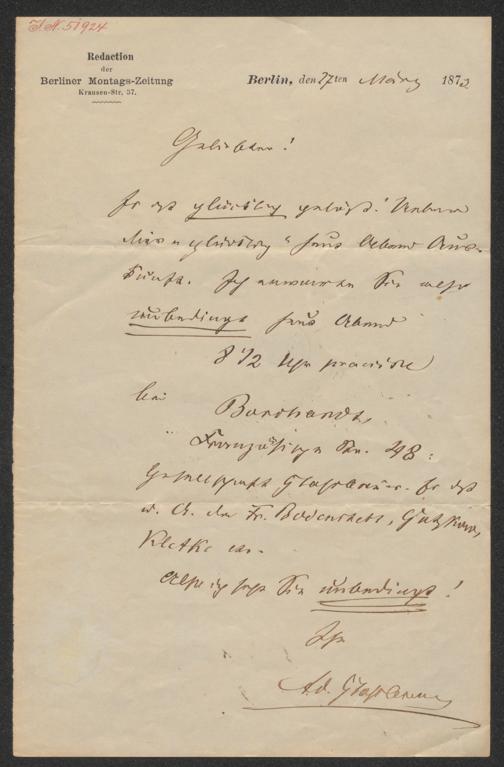 J.N. 51924
Redaction
der
Berliner Montags-Zeitung
Krausen-Str. 37.
Berlin, den 27ten März 1872
Geliebter!
Er ist glücklich gelöst! Ueber
"glücklich" heut Abend Aus-
kunft. Ich erwarte Sie also
unbedingt heut Abend
8 1/2 Uhr praecise
bei
Borchardt,
Französische Str. 48:
Gesellschaft Glassbrenner. Es ist
u. A. da Fr. Bodenstedt, Gutzkow,
Kletke etc.
Also ich sehe Sie unbedingt!
Ihr
Ad. Glassbrenner